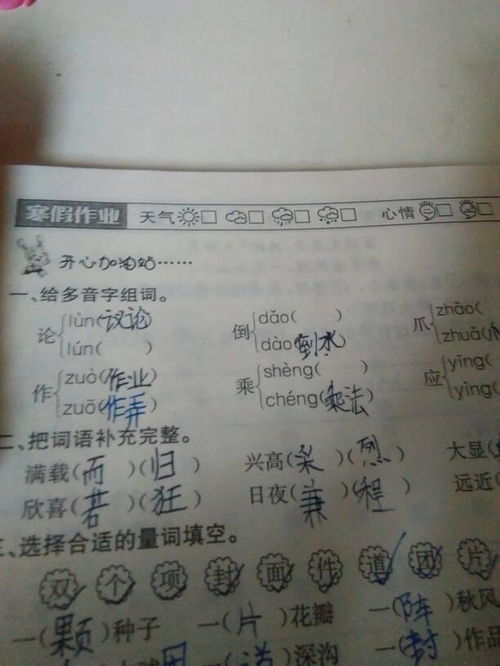 寒假作业 天气 心情
开心加油站……
一、给多音字组词。
论 lùn(议论) lún( ) 倒 dǎo( ) dào(倒水) 爪 zhǎo( zhuǎ(
作 zuò(作业) zuō(作弄) 乘 shèng( ) chéng(乘法) 应 yīng( yìng(
二、把词语补充完整。
满载(而)(归) 兴高(采)(烈) 大显(
欣喜(若)(狂) 日夜(兼)(程) 远近(
三、选择合适的量词填空。
双 个 项 封 面 件 道 团 片
一(颗)种子 一(片)花瓣 一(阵)秋风
深沟 一(封)作品